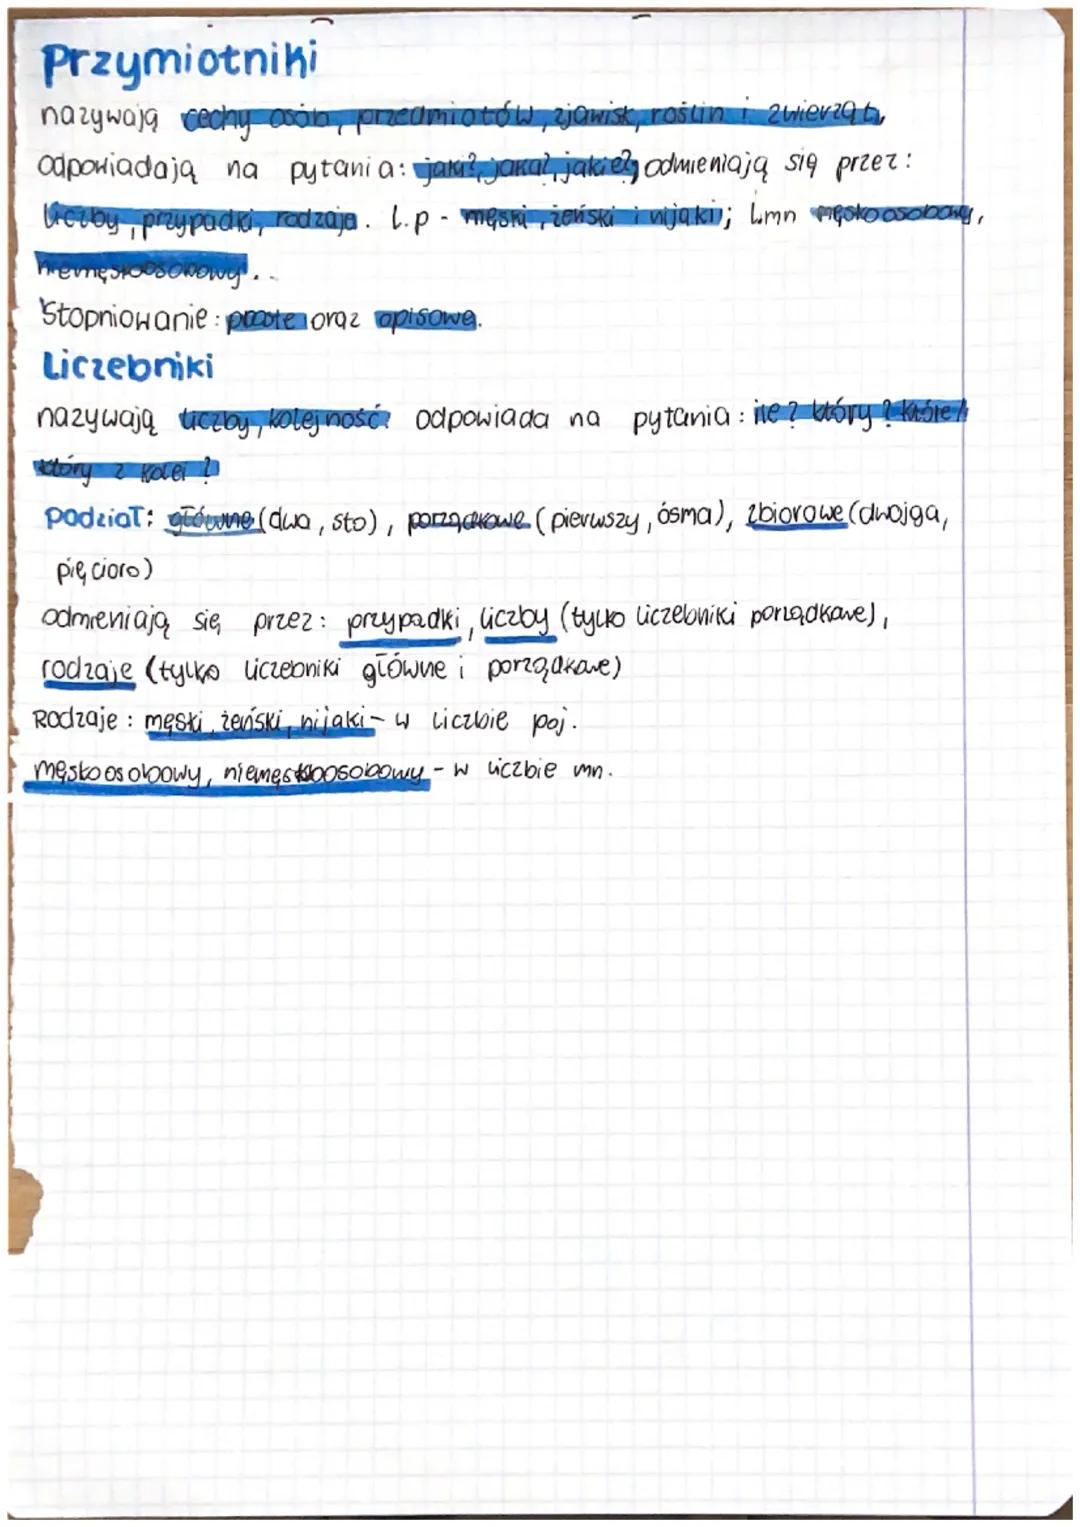 Przymiotniki
nazywają cechy osób, przedmiotów, zjawisk, roślin i zwierząt,
odpowiadają na pytania: jaki?, jaka?, jakie?, odmieniają się przez:
liczby, przypadki, rodzaje. l.p - męski, żeński i nijaki; l.mn męskoosobowy,
niemęskoosobowy...
Stopniowanie: proste oraz opisowe.
Liczebniki
nazywają liczby, kolejność; odpowiada na pytania: ile? który? które?
który z kolei?
podział: główne (dwa, sto), porządkowe (pierwszy, ósma), zbiorowe (dwojga,
pięcioro)
odmieniają się przez: przypadki, liczby (tylko liczebniki porządkowe),
rodzaje (tylko liczebniki główne i porządkowe)
Rodzaje: męski, żeński, nijaki - w liczbie poj.
męskoosobowy, niemęskoosobowy - w liczbie mn.